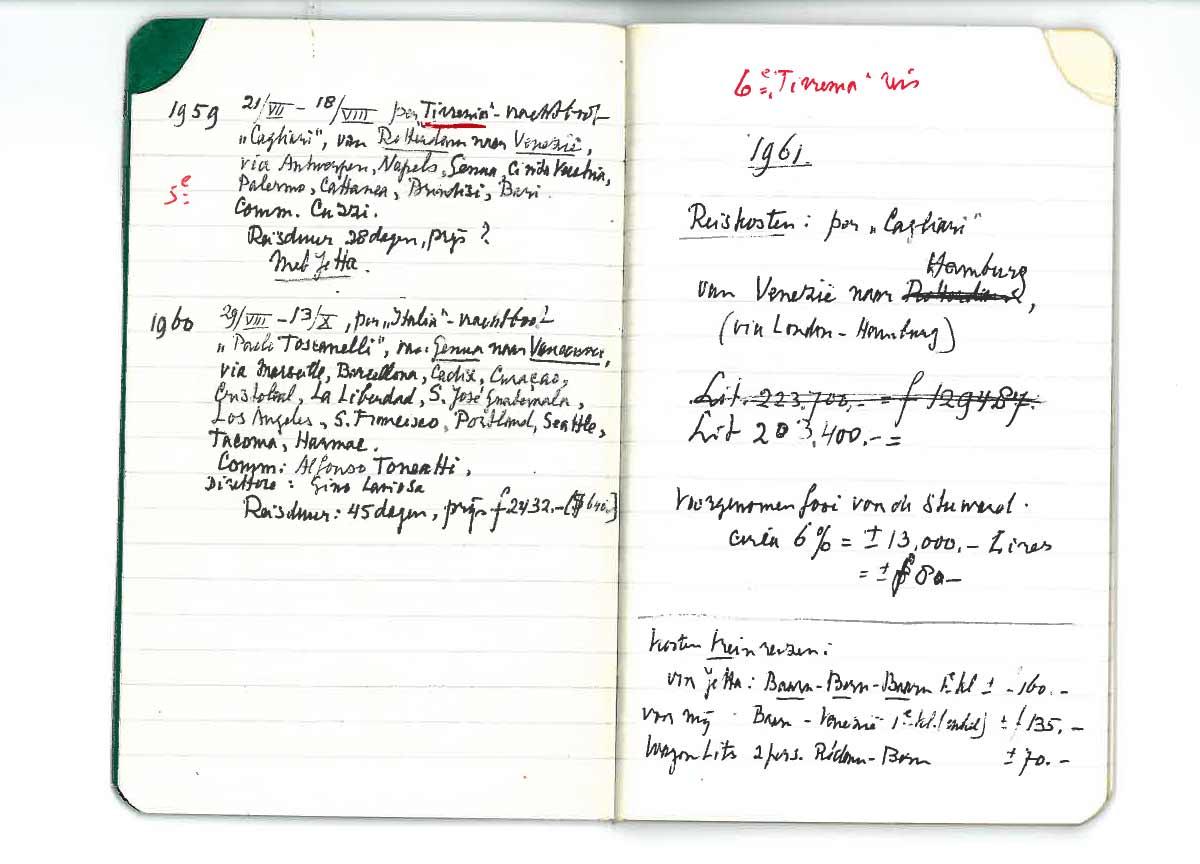 1959 21/VII - 18/VIII per „Tirrenia"-vrachtboot
„Cagliari", van Rotterdam naar Venezië,
via Antwerpen, Napels, Genua, Civita Vecchia,
Palermo, Cattanea, Brindisi, Bari.
5e
Comm. Cuzzi.
Reisduur 28 dagen, prijs ?
Met Jetta.
1960 29/VIII - 13/X, per „Italia"-vrachtboot
„Paolo Toscanelli", van Genua naar Vancouver,
via Marseille, Barcellona, Cadix, Curaçao,
Cristobal, La Libertad, S. José Guatemala,
Los Angeles, S. Francisco, Portland, Seattle,
Tacoma, Harmac.
Comm: Alfonso Toneatti,
Direttore: Gino Lariosa
Reisduur: 45 dagen, prijs f 2432.- ($ 640.)
6e „Tirrenia" reis
1961.
Reiskosten: per „Cagliari"
Hamburg
van Venezië naar Rotterdam,
(via London - Hamburg)
Lit. 223.700,- = f 1294.87.
Lit 203,400.- =
Voorgenomen fooi van de Steward.
circa 6% = ± 13,000.- Lires
= ± f 80.-
Kosten treinreizen:
van Jetta: Baarn-Bern-Baarn 1e kl ± - 160.-
van mij Baarn - Venezië 1e kl. (enkel) ± f 135.-
Wagon Lits 2 pers. R'dam-Bern ± 70.-